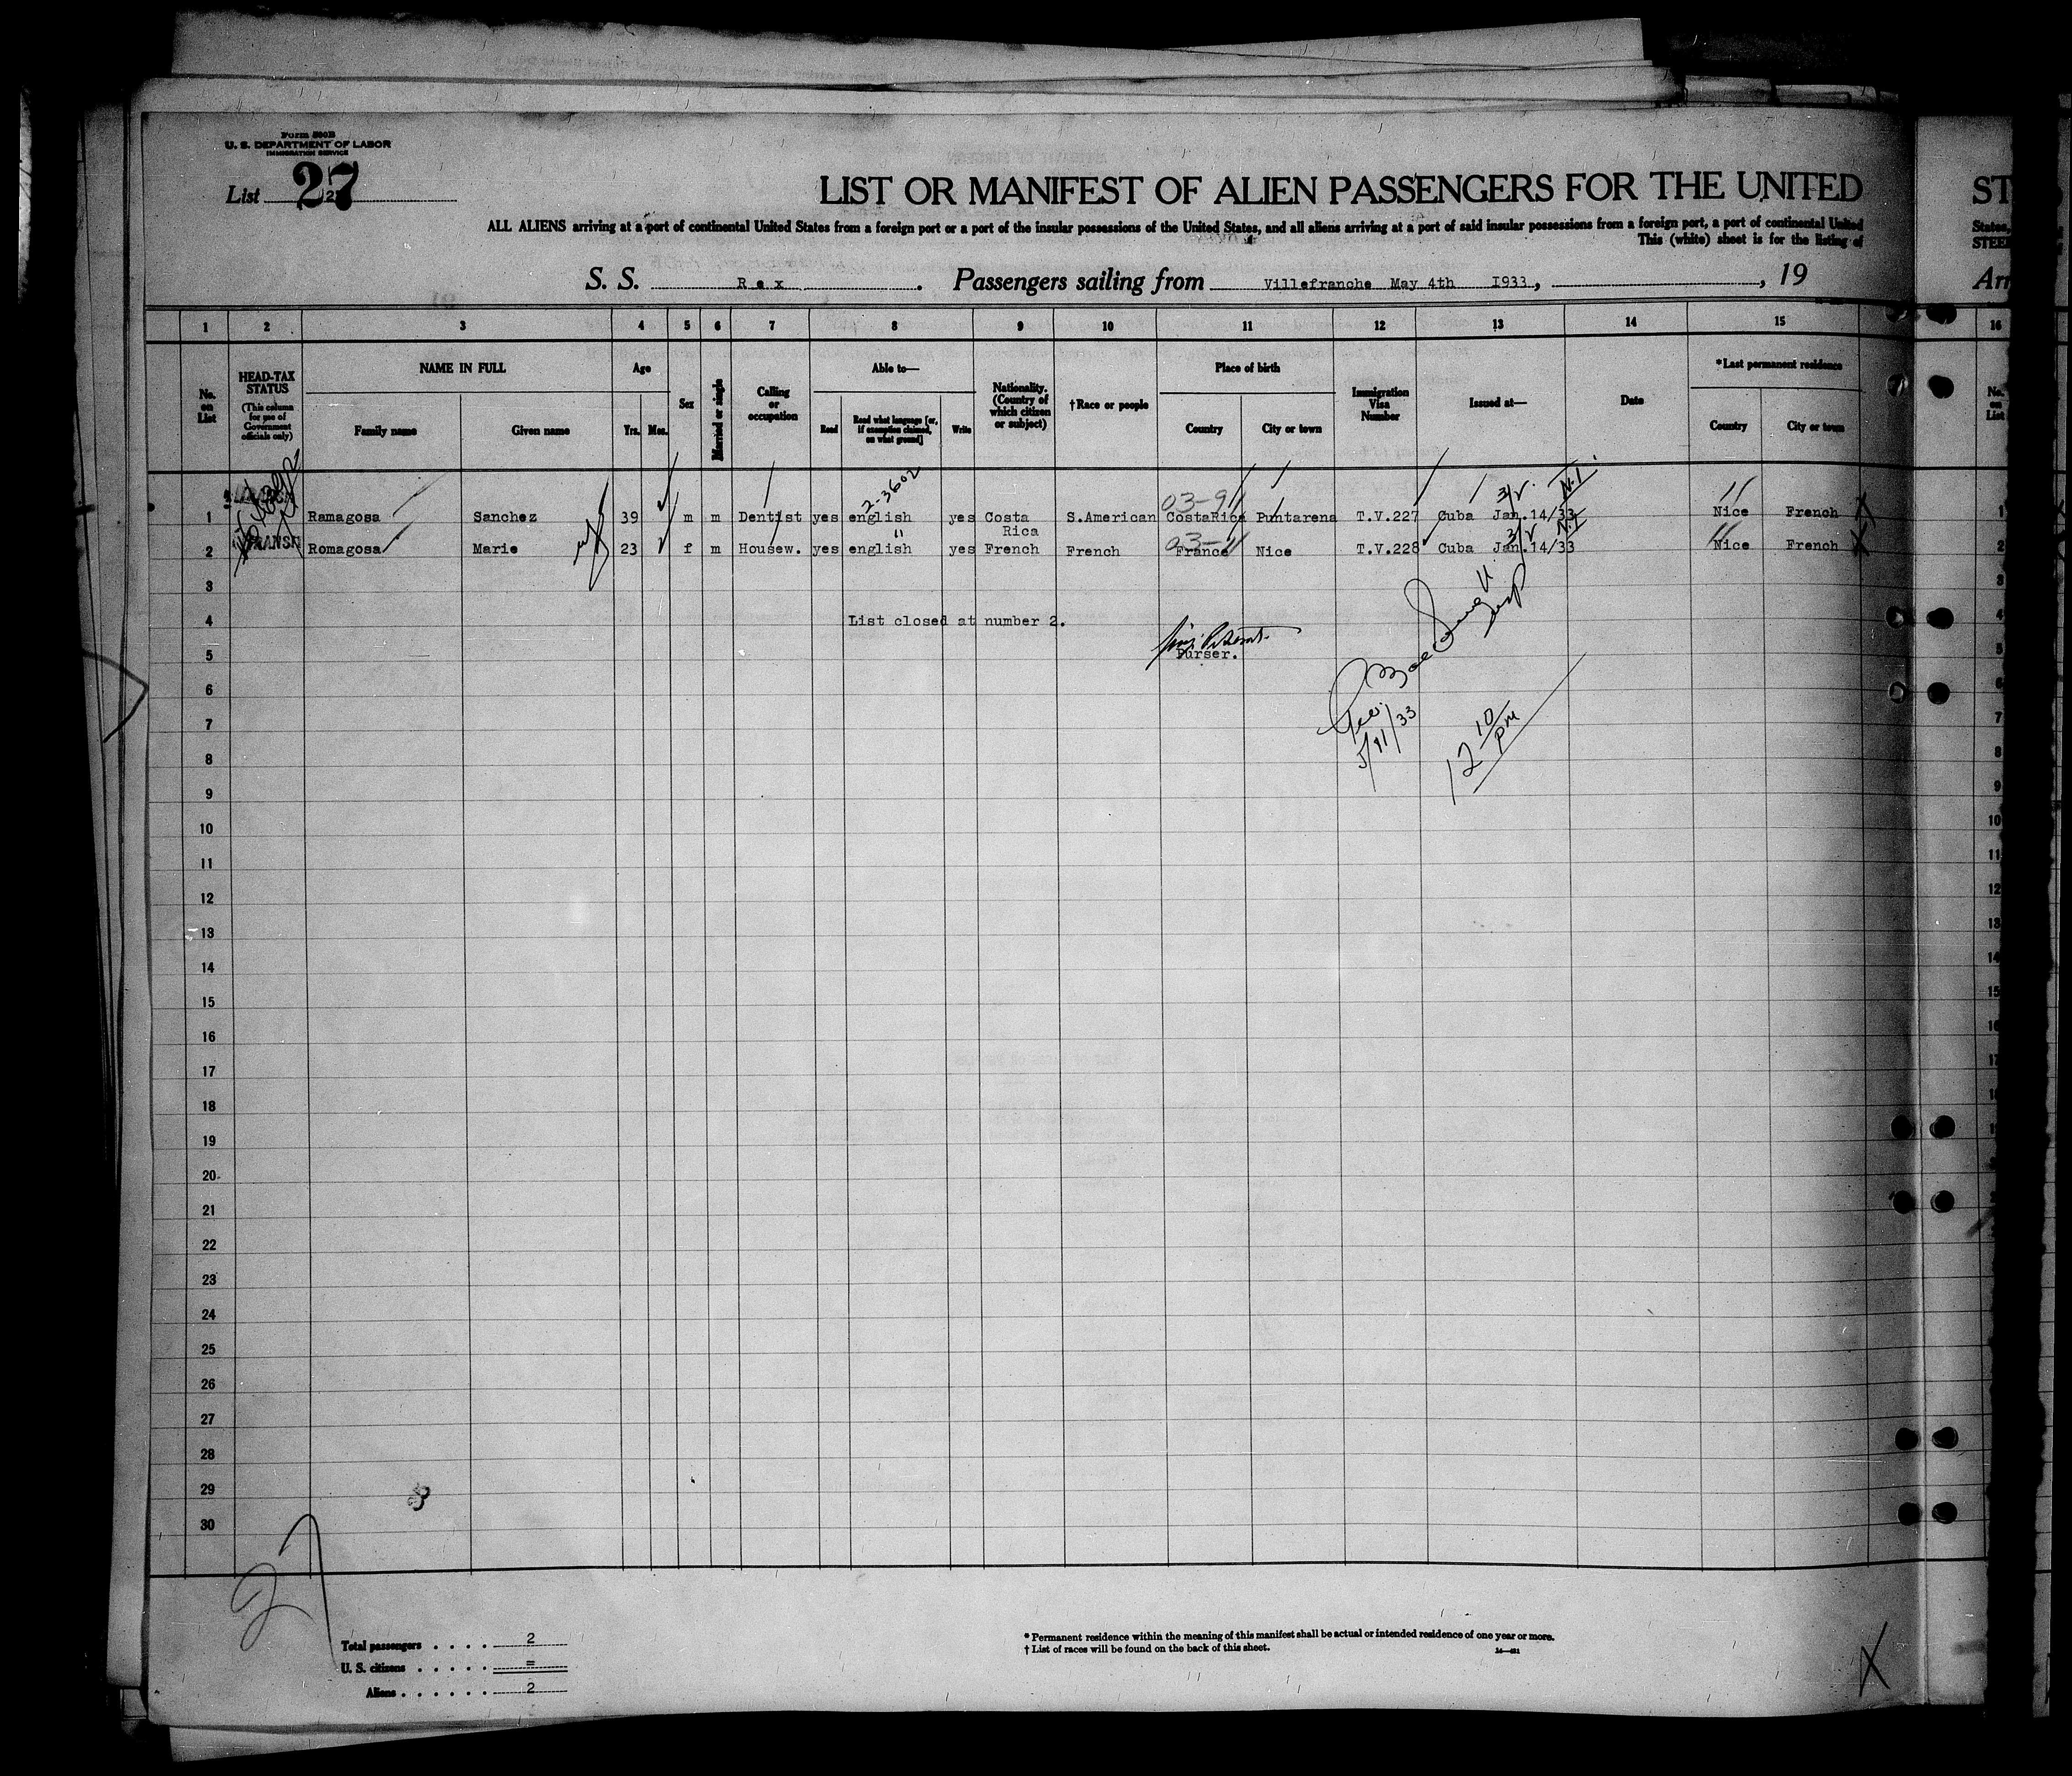 Form 500B
U. S. DEPARTMENT OF LABOR
IMMIGRATION SERVICE
List 27
LIST OR MANIFEST OF ALIEN PASSENGERS FOR THE UNITED
ST
ALL ALIENS arriving at a port of continental United States from a foreign port or a port of the insular possessions of the United States, and all aliens arriving at a port of said insular possessions from a foreign port, a port of continental United
States,
This (white) sheet is for the listing of
STEE
S. S. Rex . Passengers sailing from Villefranche May 4th 1933, , 19
Arr
1 2 3 4 5 6 7 8 9 10 11 12 13 14 15 16
No. on List
HEAD-TAX STATUS
(This column for use of Government officials only)
NAME IN FULL
Family name Given name
Age
Yrs. Mos.
Sex
Married or single
Calling or occupation
Able to—
Read
Read what language [or, if exemption claimed, on what ground]
Write
Nationality. (Country of which citizen or subject)
†Race or people
Place of birth
Country City or town
Immigration Visa Number
Issued at—
Date
*Last permanent residence
Country City or town
No. on List
2-3602
03-911
N.I.
1 Ramagosa Sanchez 39 m m Dentist yes english yes Costa Rica S.American CostaRica Puntarena T.V.227 Cuba Jan.14/33 Nice French 1
TRANSIT
2 Romagosa Marie 23 f m Housew. yes english " yes French French France Nice T.V.228 Cuba Jan.14/33 Nice French 2
3
4 List closed at number 2.
5 Purser.
6
7
8
5/11/33
12 10 pm
9
10
11
12
13
14
15
16
17
18
19
20
21
22
23
24
25
26
27
28
29
30
27
Total passengers . . . . 2
U. S. citizens . . . . . =
Aliens . . . . . . 2
* Permanent residence within the meaning of this manifest shall be actual or intended residence of one year or more.
† List of races will be found on the back of this sheet.
X